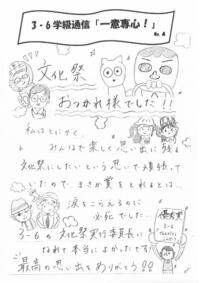 3・6学級通信「一意専心!」
No.4
文化祭
おつかれ様でした!!
私はとにかく、
みんなで楽しく思い出に残る
文化祭にしたいという思いで頑張って
いたので、まさか賞をとれるとは…
涙をこらえるのに
必死でした…
優秀賞
3-6
3-6の文化祭実行委員長に
なれて本当によかったです!
最高の思い出をありがとう!!